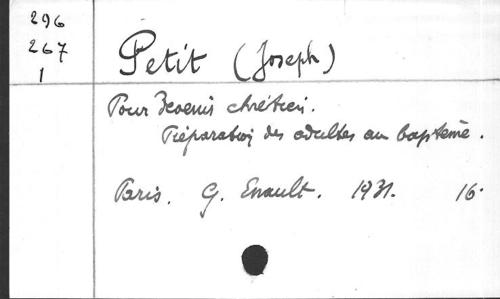 296
267
1
Petit (Joseph)
Pour devenir chrétien.
Préparation des adultes au baptême.
Paris. G. Enault. 1931. 16°